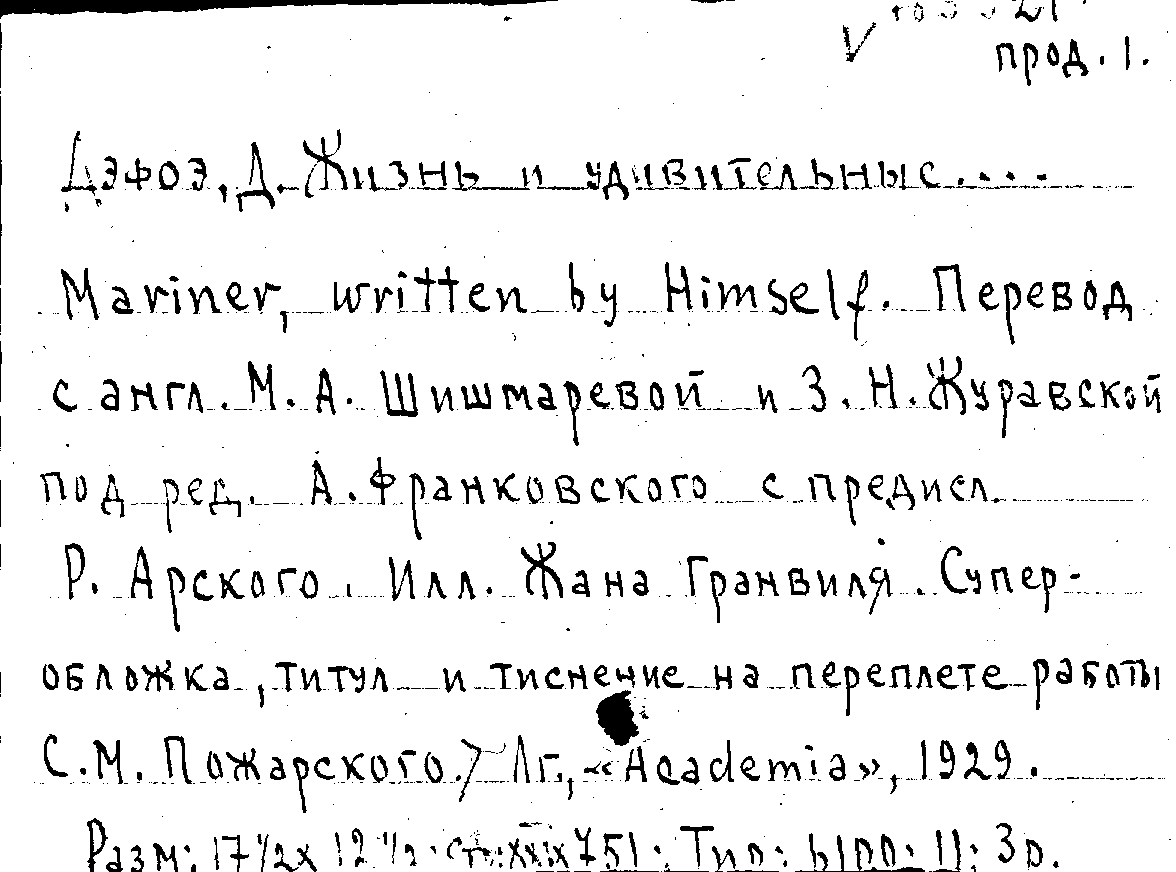 прод. 1.
Дэфоэ, Д. Жизнь и удивительные....
Mariner, written by Himself. Перевод
с англ. М. А. Шишмаревой и З. Н. Журавской
под ред. А. Франковского с предисл.
Р. Арского. Илл. Жана Гранвиля. Супер-
обложка, титул и тиснение на переплете работы
С. М. Пожарского.) Лг., «Academia», 1929.
Разм: 17½ x 12½